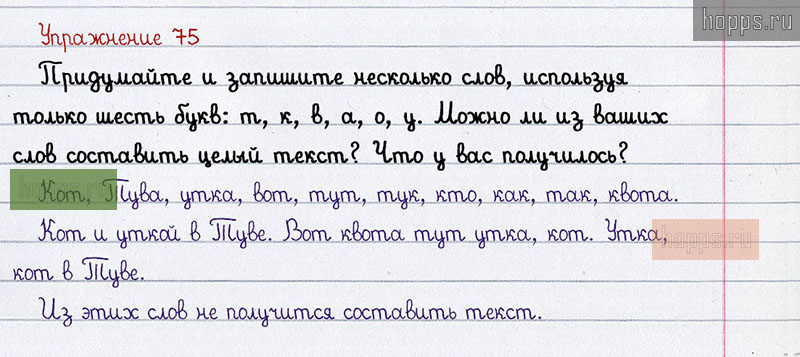 hopps.ru
Упражнение 75
Придумайте и запишите несколько слов, используя
только шесть букв: т, к, в, а, о, у. Можно ли из ваших
слов составить целый текст? Что у вас получилось?
hopps.ru
Кот, Тува, утка, вот, тут, тук, кто, как, так, квота.
Кот и уткой в Туве. Вот квота тут утка, кот. Утка,
hopps.ru
кот в Туве.
Из этих слов не получится составить текст.